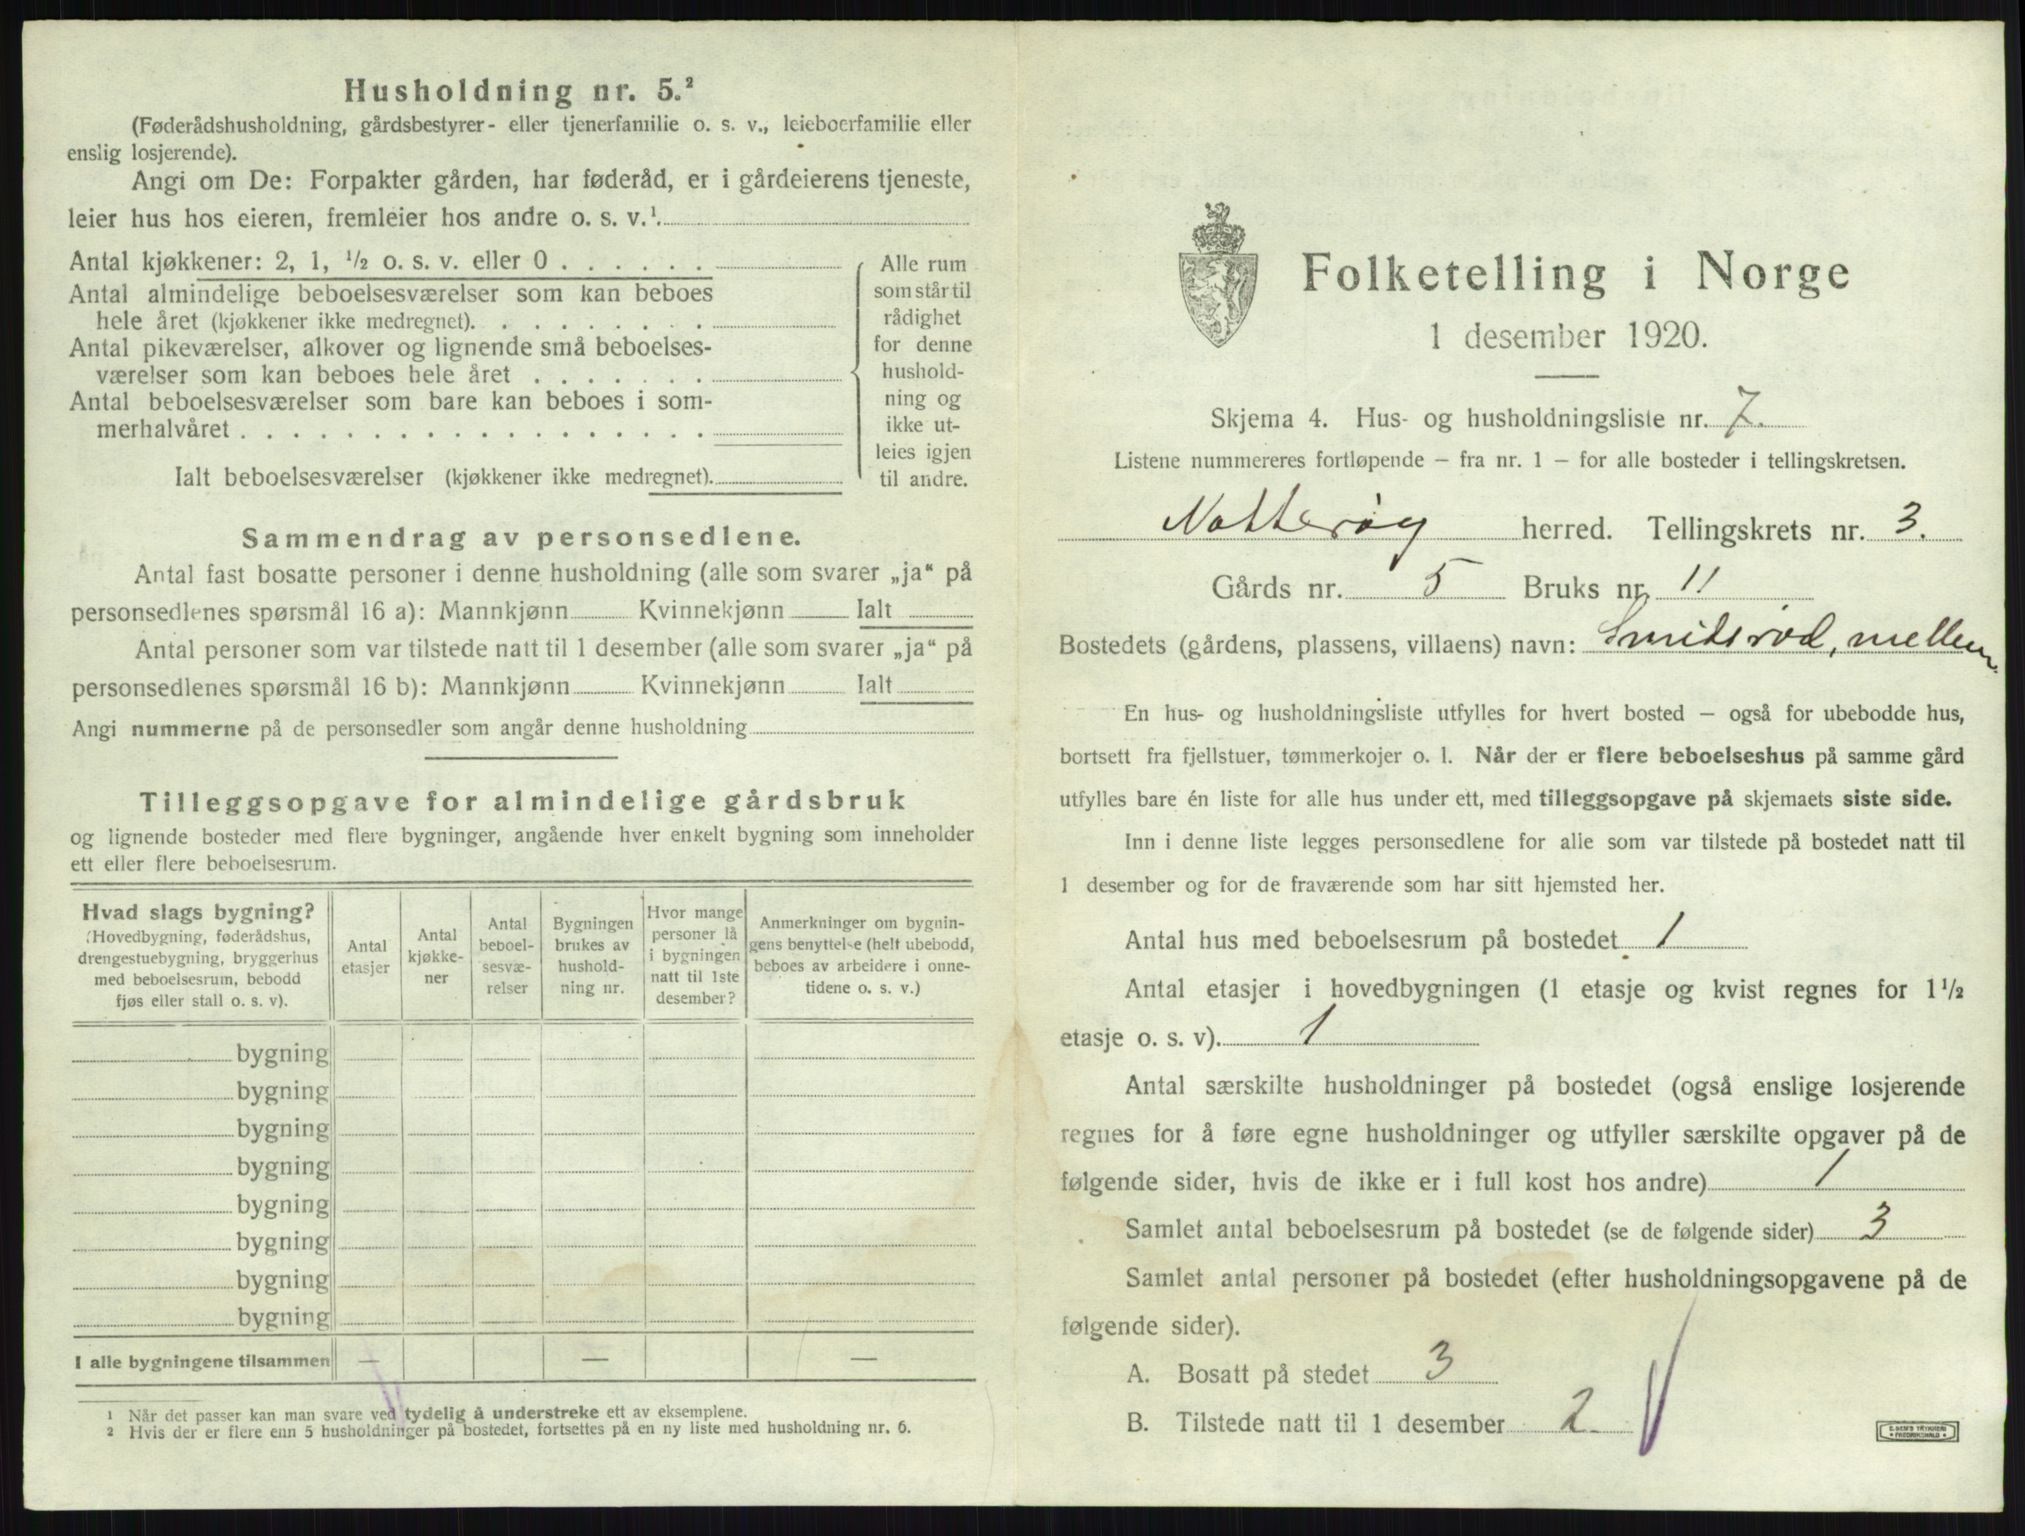 Husholdning nr. 5.²
(Føderådshusholdning, gårdsbestyrer- eller tjenerfamilie o. s. v., leieboerfamilie eller
enslig losjerende).
Angi om De: Forpakter gården, har føderåd, er i gårdeierens tjeneste,
leier hus hos eieren, fremleier hos andre o. s. v.¹
Antal kjøkkener: 2, 1, ½ o. s. v. eller 0 . . . . . .
Antal almindelige beboelsesværelser som kan beboes
hele året (kjøkkener ikke medregnet). . . . . . . . .
Antal pikeværelser, alkover og lignende små beboelses-
værelser som kan beboes hele året . . . . . . .
Antal beboelsesværelser som bare kan beboes i som-
merhalvåret . . . . . . . . . . . . . . . . . .
Ialt beboelsesværelser (kjøkkener ikke medregnet).
Alle rum
som står til
rådighet
for denne
hushold-
ning og
ikke ut-
leies igjen
til andre.
Sammendrag av personsedlene.
Antal fast bosatte personer i denne husholdning (alle som svarer „ja“ på
personsedlenes spørsmål 16 a): Mannkjønn Kvinnekjønn Ialt
Antal personer som var tilstede natt til 1 desember (alle som svarer „ja“ på
personsedlenes spørsmål 16 b): Mannkjønn Kvinnekjønn Ialt
Angi nummerne på de personsedler som angår denne husholdning
Tilleggsopgave for almindelige gårdsbruk
og lignende bosteder med flere bygninger, angående hver enkelt bygning som inneholder
ett eller flere beboelsesrum.
Hvad slags bygning?
(Hovedbygning, føderådshus,
drengestuebygning, bryggerhus
med beboelsesrum, bebodd
fjøs eller stall o. s. v).
Antal
etasjer
Antal
kjøkke-
ner
Antal
beboel-
sesvæ-
relser
Bygningen
brukes av
hushold-
ning nr.
Hvor mange
personer lå
i bygningen
natt til 1ste
desember?
Anmerkninger om bygnin-
gens benyttelse (helt ubebodd,
beboes av arbeidere i onne-
tidene o. s. v.)
bygning
bygning
bygning
bygning
bygning
bygning
bygning
bygning
I alle bygningene tilsammen — — —
¹ Når det passer kan man svare ved tydelig å understreke ett av eksemplene.
² Hvis der er flere enn 5 husholdninger på bostedet, fortsettes på en ny liste med husholdning nr. 6.
Folketelling i Norge
1 desember 1920.
Skjema 4. Hus- og husholdningsliste nr. 7.
Listene nummereres fortløpende – fra nr. 1 – for alle bosteder i tellingskretsen.
Nøtterøy herred. Tellingskrets nr. 3.
Gårds nr. 5 Bruks nr. 11
Bostedets (gårdens, plassens, villaens) navn: Smidsrød, mellem.
En hus- og husholdningsliste utfylles for hvert bosted – også for ubebodde hus,
bortsett fra fjellstuer, tømmerkojer o. l. Når der er flere beboelseshus på samme gård
utfylles bare én liste for alle hus under ett, med tilleggsopgave på skjemaets siste side.
Inn i denne liste legges personsedlene for alle som var tilstede på bostedet natt til
1 desember og for de fraværende som har sitt hjemsted her.
Antal hus med beboelsesrum på bostedet 1
Antal etasjer i hovedbygningen (1 etasje og kvist regnes for 1½
etasje o. s. v). 1
Antal særskilte husholdninger på bostedet (også enslige losjerende
regnes for å føre egne husholdninger og utfyller særskilte opgaver på de
følgende sider, hvis de ikke er i full kost hos andre) 1
Samlet antal beboelsesrum på bostedet (se de følgende sider) 3
Samlet antal personer på bostedet (efter husholdningsopgavene på de
følgende sider).
A. Bosatt på stedet 3
B. Tilstede natt til 1 desember 2